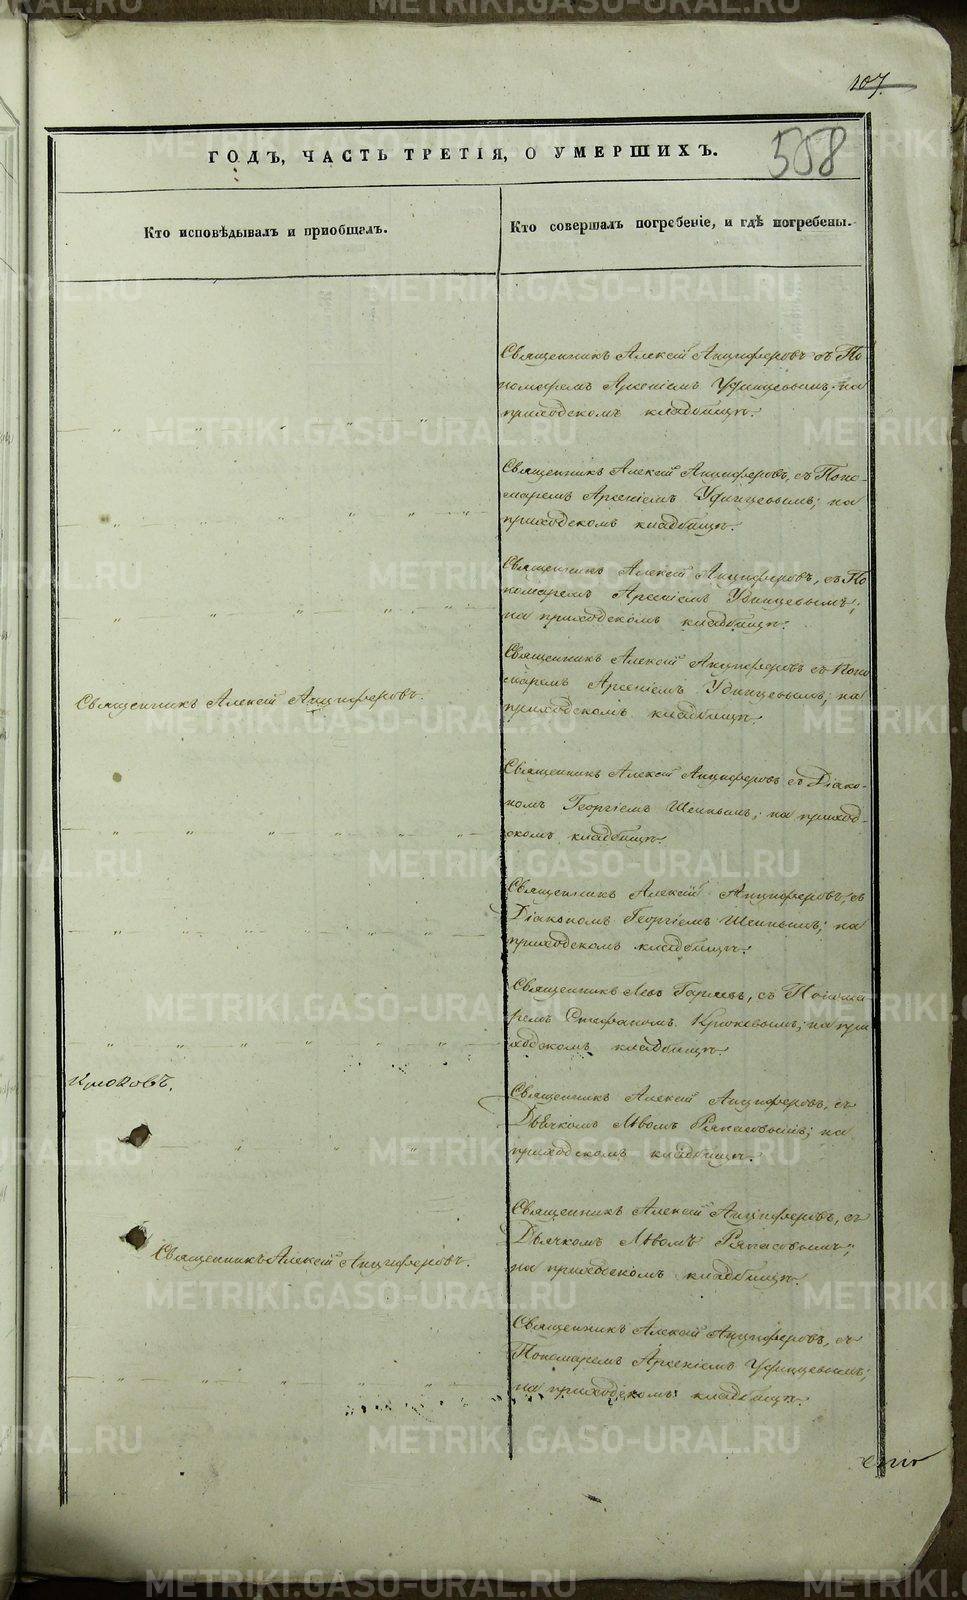 107.
ГОДЪ, ЧАСТЬ ТРЕТІЯ, О УМЕРШИХЪ.
508
Кто исповѣдывалъ и пріобщалъ.
Кто совершалъ погребеніе, и гдѣ погребены.
Священникъ Алексій Анциферовъ съ По
номаремъ Арсеніемъ Удинцевымъ; на
приходскомъ кладбищѣ.
Священникъ Алексій Анциферовъ, съ Поно-
маремъ Арсеніемъ Удинцевымъ; на
приходскомъ кладбищѣ.
Священникъ Алексій Анциферовъ, съ По
номаремъ Арсеніемъ Удинцевымъ;
на приходскомъ кладбищѣ.
Священникъ Алексій Анциферовъ.
Священникъ Алексій Анциферовъ съ Поно
маремъ Арсеніемъ Удинцевымъ; на
приходскомъ кладбищѣ.
Священникъ Алексій Анциферовъ съ Діако-
номъ Георгіемъ на приход-
скомъ кладбищѣ.
Священникъ Алексій Анциферовъ, съ
Діакономъ Георгіемъ на
приходскомъ кладбищѣ.
Священникъ Левъ съ Понома
ремъ Стефаномъ Крюковымъ; на при
ходскомъ кладбищѣ.
Крюковъ.
Священникъ Алексій Анциферовъ, съ
Дьячкомъ Львомъ на
приходскомъ кладбищѣ.
Священникъ Алексій Анциферовъ.
Священникъ Алексій Анциферовъ, съ
Дьячкомъ Львомъ
на приходскомъ кладбищѣ.
Священникъ Алексій Анциферовъ, съ
Пономаремъ Арсеніемъ Удинцевымъ;
на приходскомъ кладбищѣ.
METRIKI.GASO-URAL.RU